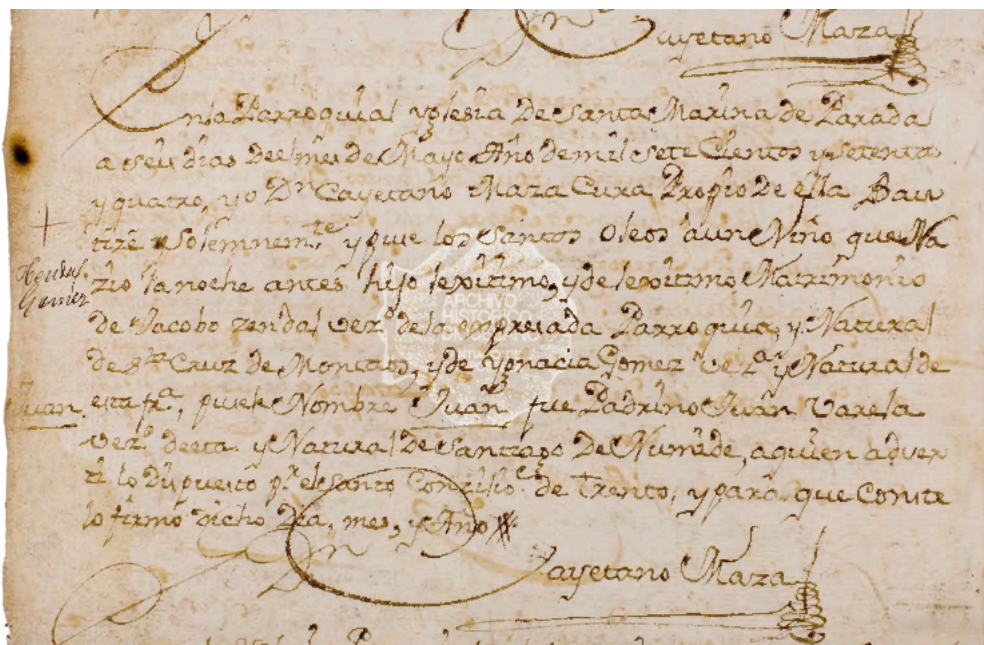 Cayetano Maza
En la Parroquial yglesia De Santa Marina de Parada
a seis dias deel mes de Mayo Año de mil sete Cientos y setenta
y quatro, yo Dn Cayetano Maza Cura Propio De ella Bau
tizè solemnemte y puse los Santos Oleos â un Niño que Na
zio la noche antes hijo lexitimo, y de lexitimo Matrimonio
de Jacobo Zendal vezo de la expresada Parroquia, y Natural
de Sta Cruz de Montaos, y de Ygnacia Gomez veza y Natural de
esta fra, pusele Nombre Juan fue Padrino Juan Varela
vezo de esta y Natural De Santiago De Numide, a quien adver
ti lo dispuesto pr el Santo Concilio de Trento, y para que Conste
lo firmo dicho Dia, mes, y Año
Dn Cayetano Maza
Gomez
Juan
ARCHIVO
HISTÓRICO
DIOCESANO